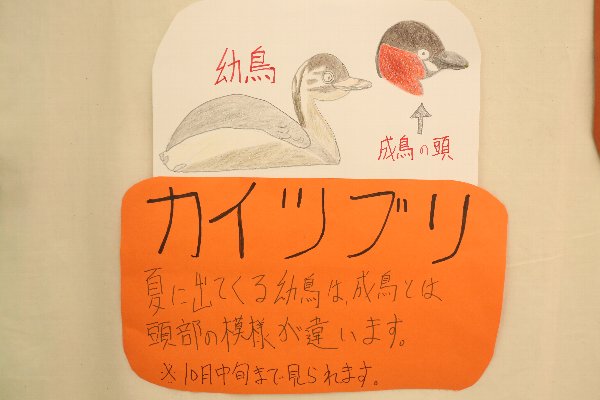 幼鳥
成鳥の頭
カイツブリ
夏に出てくる幼鳥は、成鳥とは
頭部の模様が違います。
※10月中旬まで見られます。